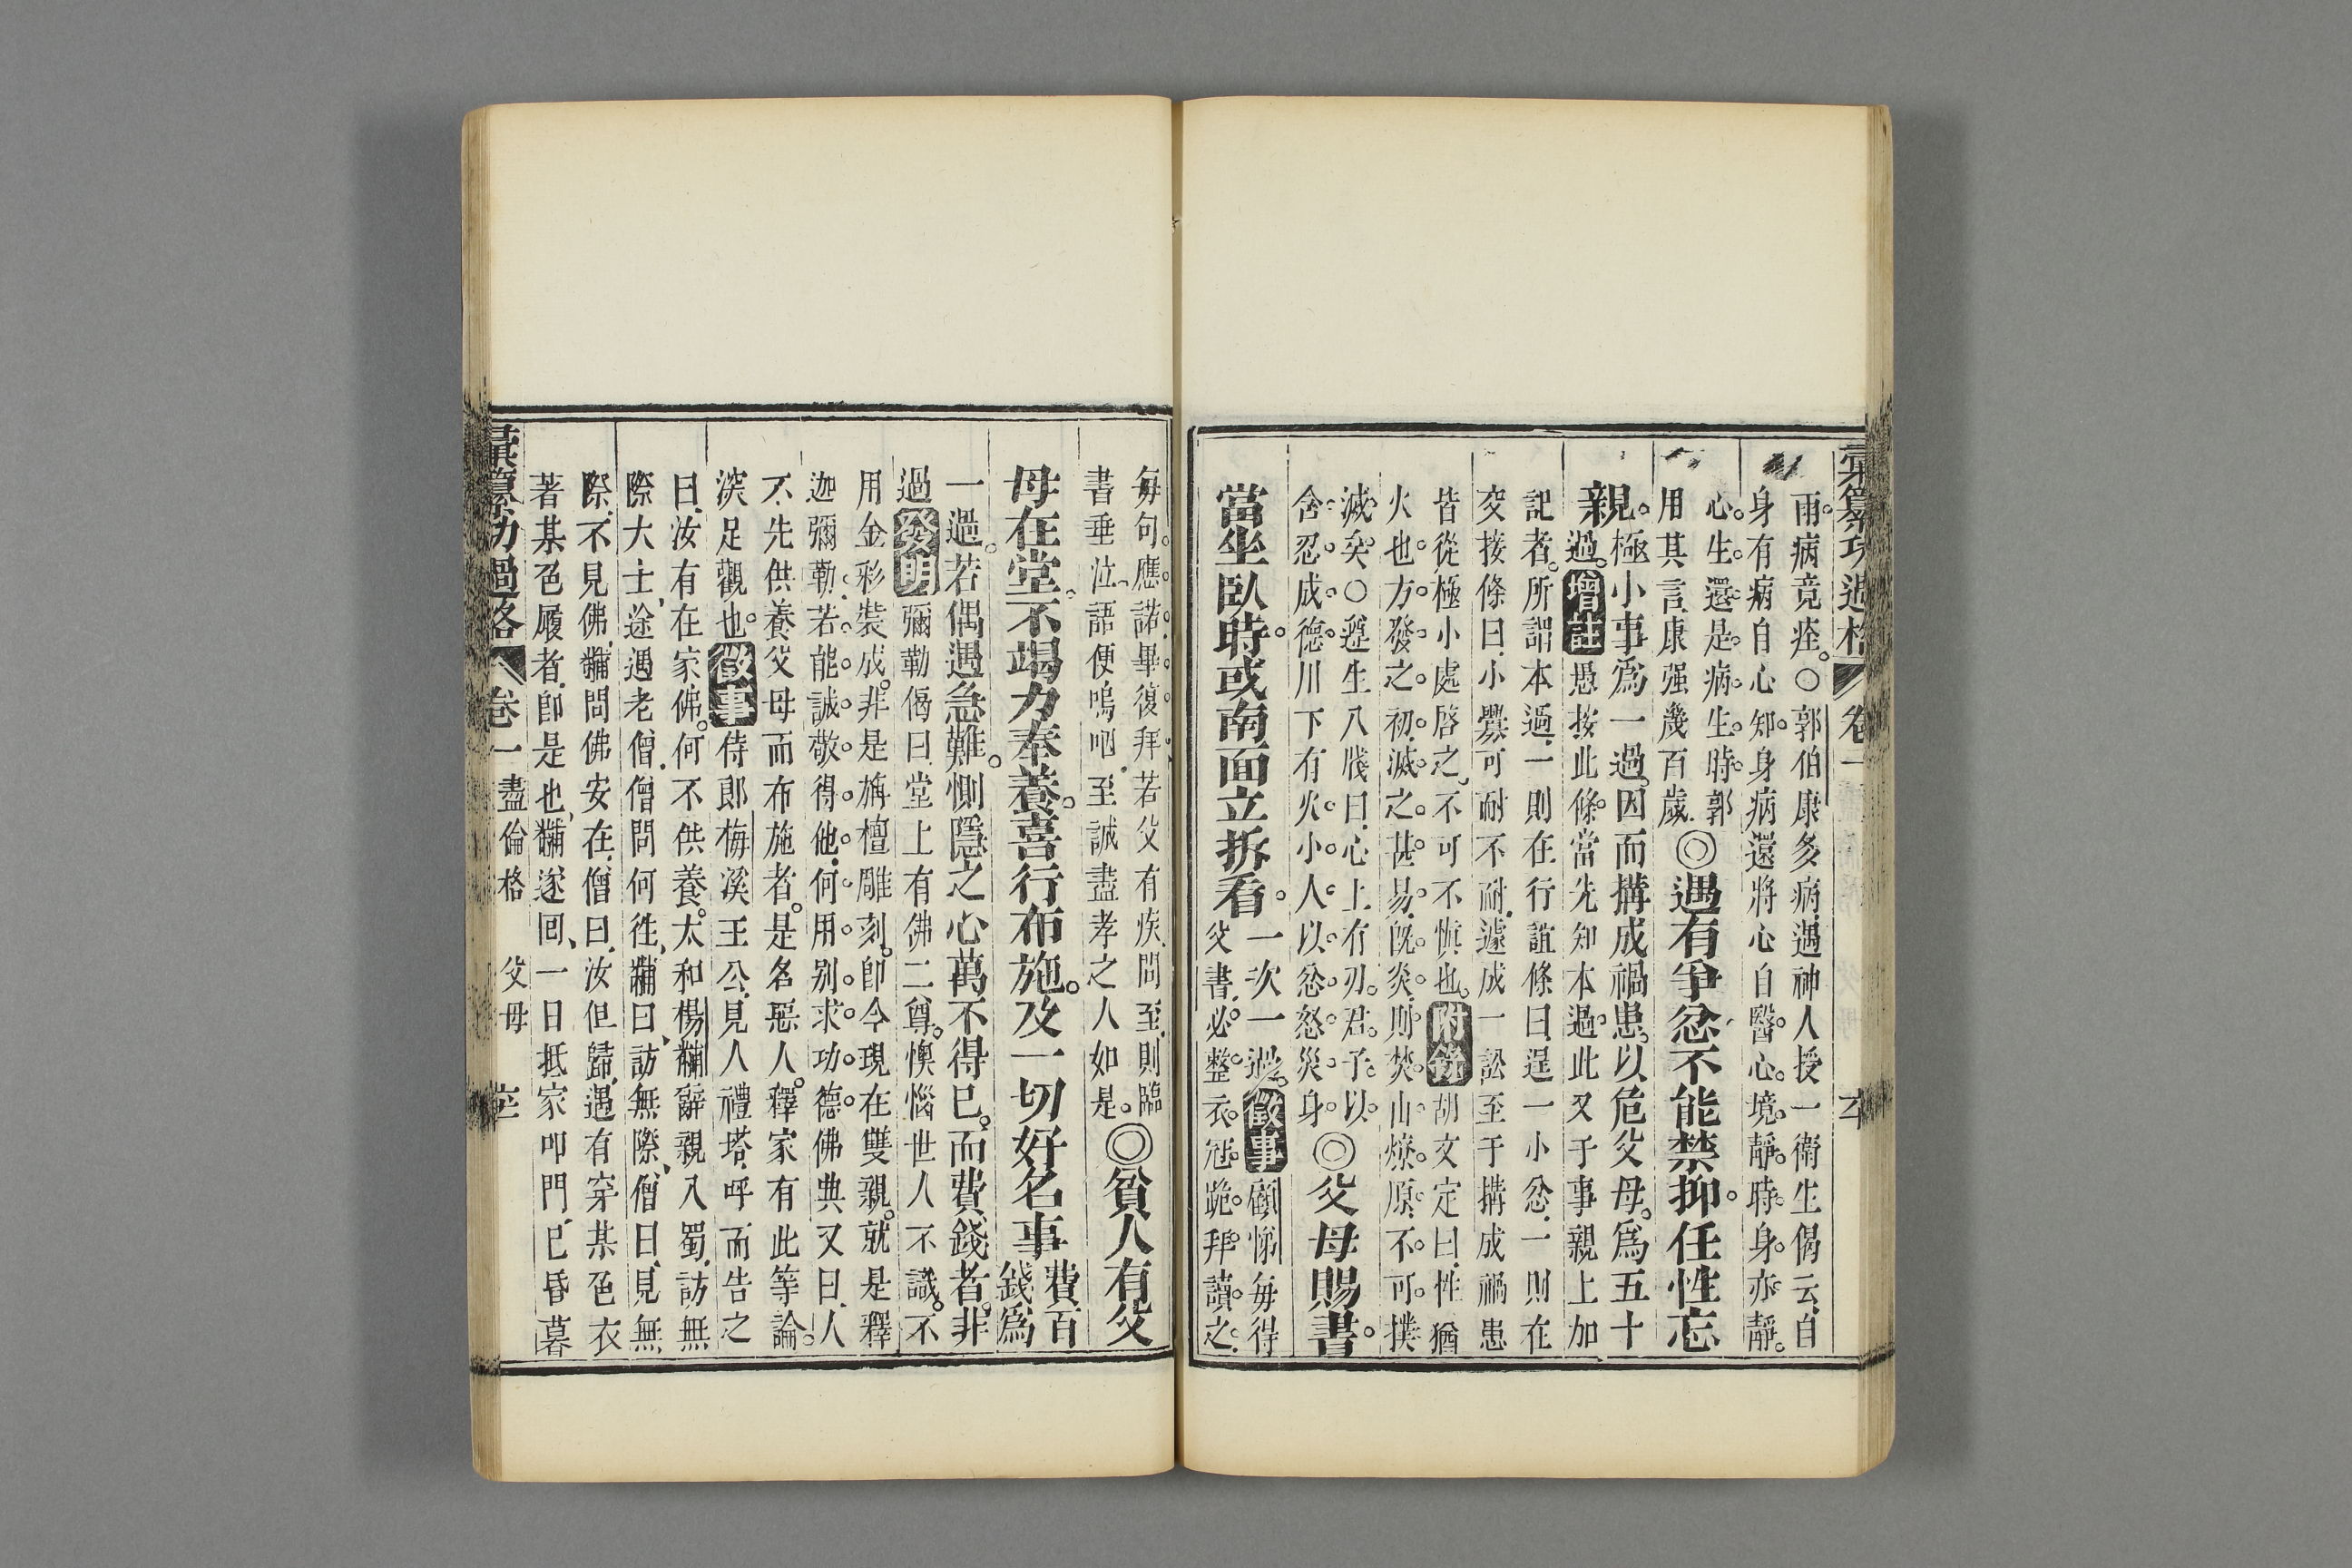 彙纂功過格 卷一
雨。病竟痊。○郭伯康多病，遇神人授一衛生偈云，自
身有病自心知，身病還將心自醫。心境靜時身亦靜。
心生還是病生時。郭
用其言，康强幾百歲。◎遇有爭忿不能禁抑。任性忘
親。極小事爲一過。因而搆成禍患。以危父母。爲五十
過。增註愚按此條當先知本過，此又于事親上加
記者。所謂本過，一則在行誼條曰逞一小忿，一則在
交接條曰，小釁可耐不耐，遽成一訟，至于搆成禍患
皆從極小處啓之，不可不愼也。附錄胡文定曰，性猶
火也。方發之初，滅之甚易，旣炎則焚山燎原，不可撲
滅矣。○遵生八牋曰，心上有刃，君子以
含忍成德，川下有火，小人以忿怒災身。◎父母賜書。
當坐臥時。或南面立拆看。一次一過。徵事顧悌每得
父書，必整衣冠，跪拜讀之，
每句應諾，畢復拜，若父有疾，問至，則臨
書垂泣，語便嗚咽，至誠盡孝之人如是。◎貧人有父
母在堂。不竭力奉養。喜行布施。及一切好名事費百
錢爲
一過。若偶遇急難。惻隱之心。萬不得已。而費錢者。非
過發明彌勒偈曰，堂上有佛二尊。懊惱世人不識。不
用金彩裝成。非是旃檀雕刻。卽今現在雙親。就是釋
迦彌勒。若能誠敬得他，何用别求功德。佛典又曰，人
不先供養父母而布施者。是名惡人。釋家有此等論。
深足觀也。徵事侍郞梅溪王公，見人禮塔，呼而告之
曰，汝有在家佛。何不供養。太和楊黼辭親入蜀，訪無
際大士，途遇老僧，僧問何徃，黼曰，訪無際，僧曰，見無
際，不見佛，黼問佛安在，僧曰，汝但歸，遇有穿某色衣
著某色履者，卽是也，黼遂回，一日抵家叩門，已昏暮
彙纂功過格 卷一 盡倫格 父母